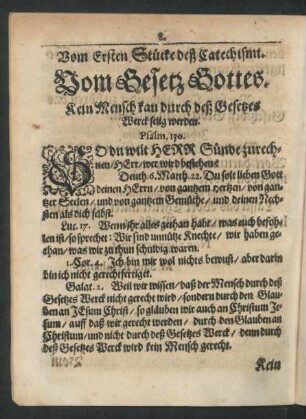 2.
Vom Ersten Stücke deß Catechismi.
Vom Gesetz Gottes.
Kein Mensch kan durch deß Gesetzes
Werck selig werden.
Psalm. 130.
SO du wilt HERR Sünde zurech-
nen / HErr / wer wird bestehen?
Deuth. 6. Matth. 22. Du solt lieben Gott
deinen HErrn / von gantzem Hertzen / von gan-
tzer Seelen / und von gantzem Gemüthe / und deinen Nech-
sten als dich selbst.
Luc. 17. Wenn ihr alles gethan habt / was euch befoh-
len ist / so sprechet: Wir sind unnütze Knechte / wir haben ge-
than / was wir zu thun schuldig waren.
1. Cor. 4. Ich bin mir wol nichts bewust / aber darin
bin ich nicht gerechtfertiget.
Galat. 2. Weil wir wissen / daß der Mensch durch deß
Gesetzes Werck nicht gerecht wird / sondern durch den Glau-
ben an JEsum Christ / so gläuben wir auch an Christum Je-
sum / auff daß wir gerecht werden / durch den Glauben an
Christum / und nicht durch deß Gesetzes Werck / denn durch
deß Gesetzes Werck wird kein Mensch gerecht.
Kein